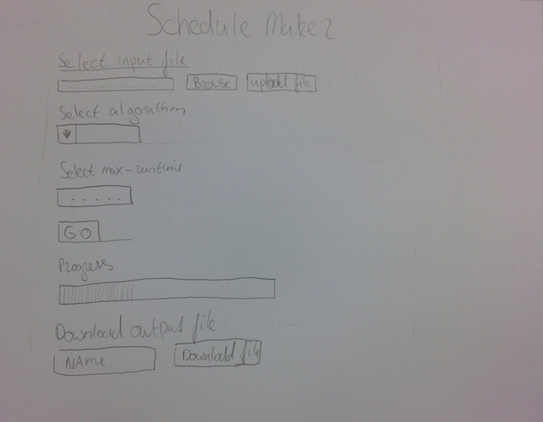 Schedule Maker
Select input file
Browse upload file
Select algorithm
Select max-runtime
.....
GO
Progress
Download output file
NAme Download file